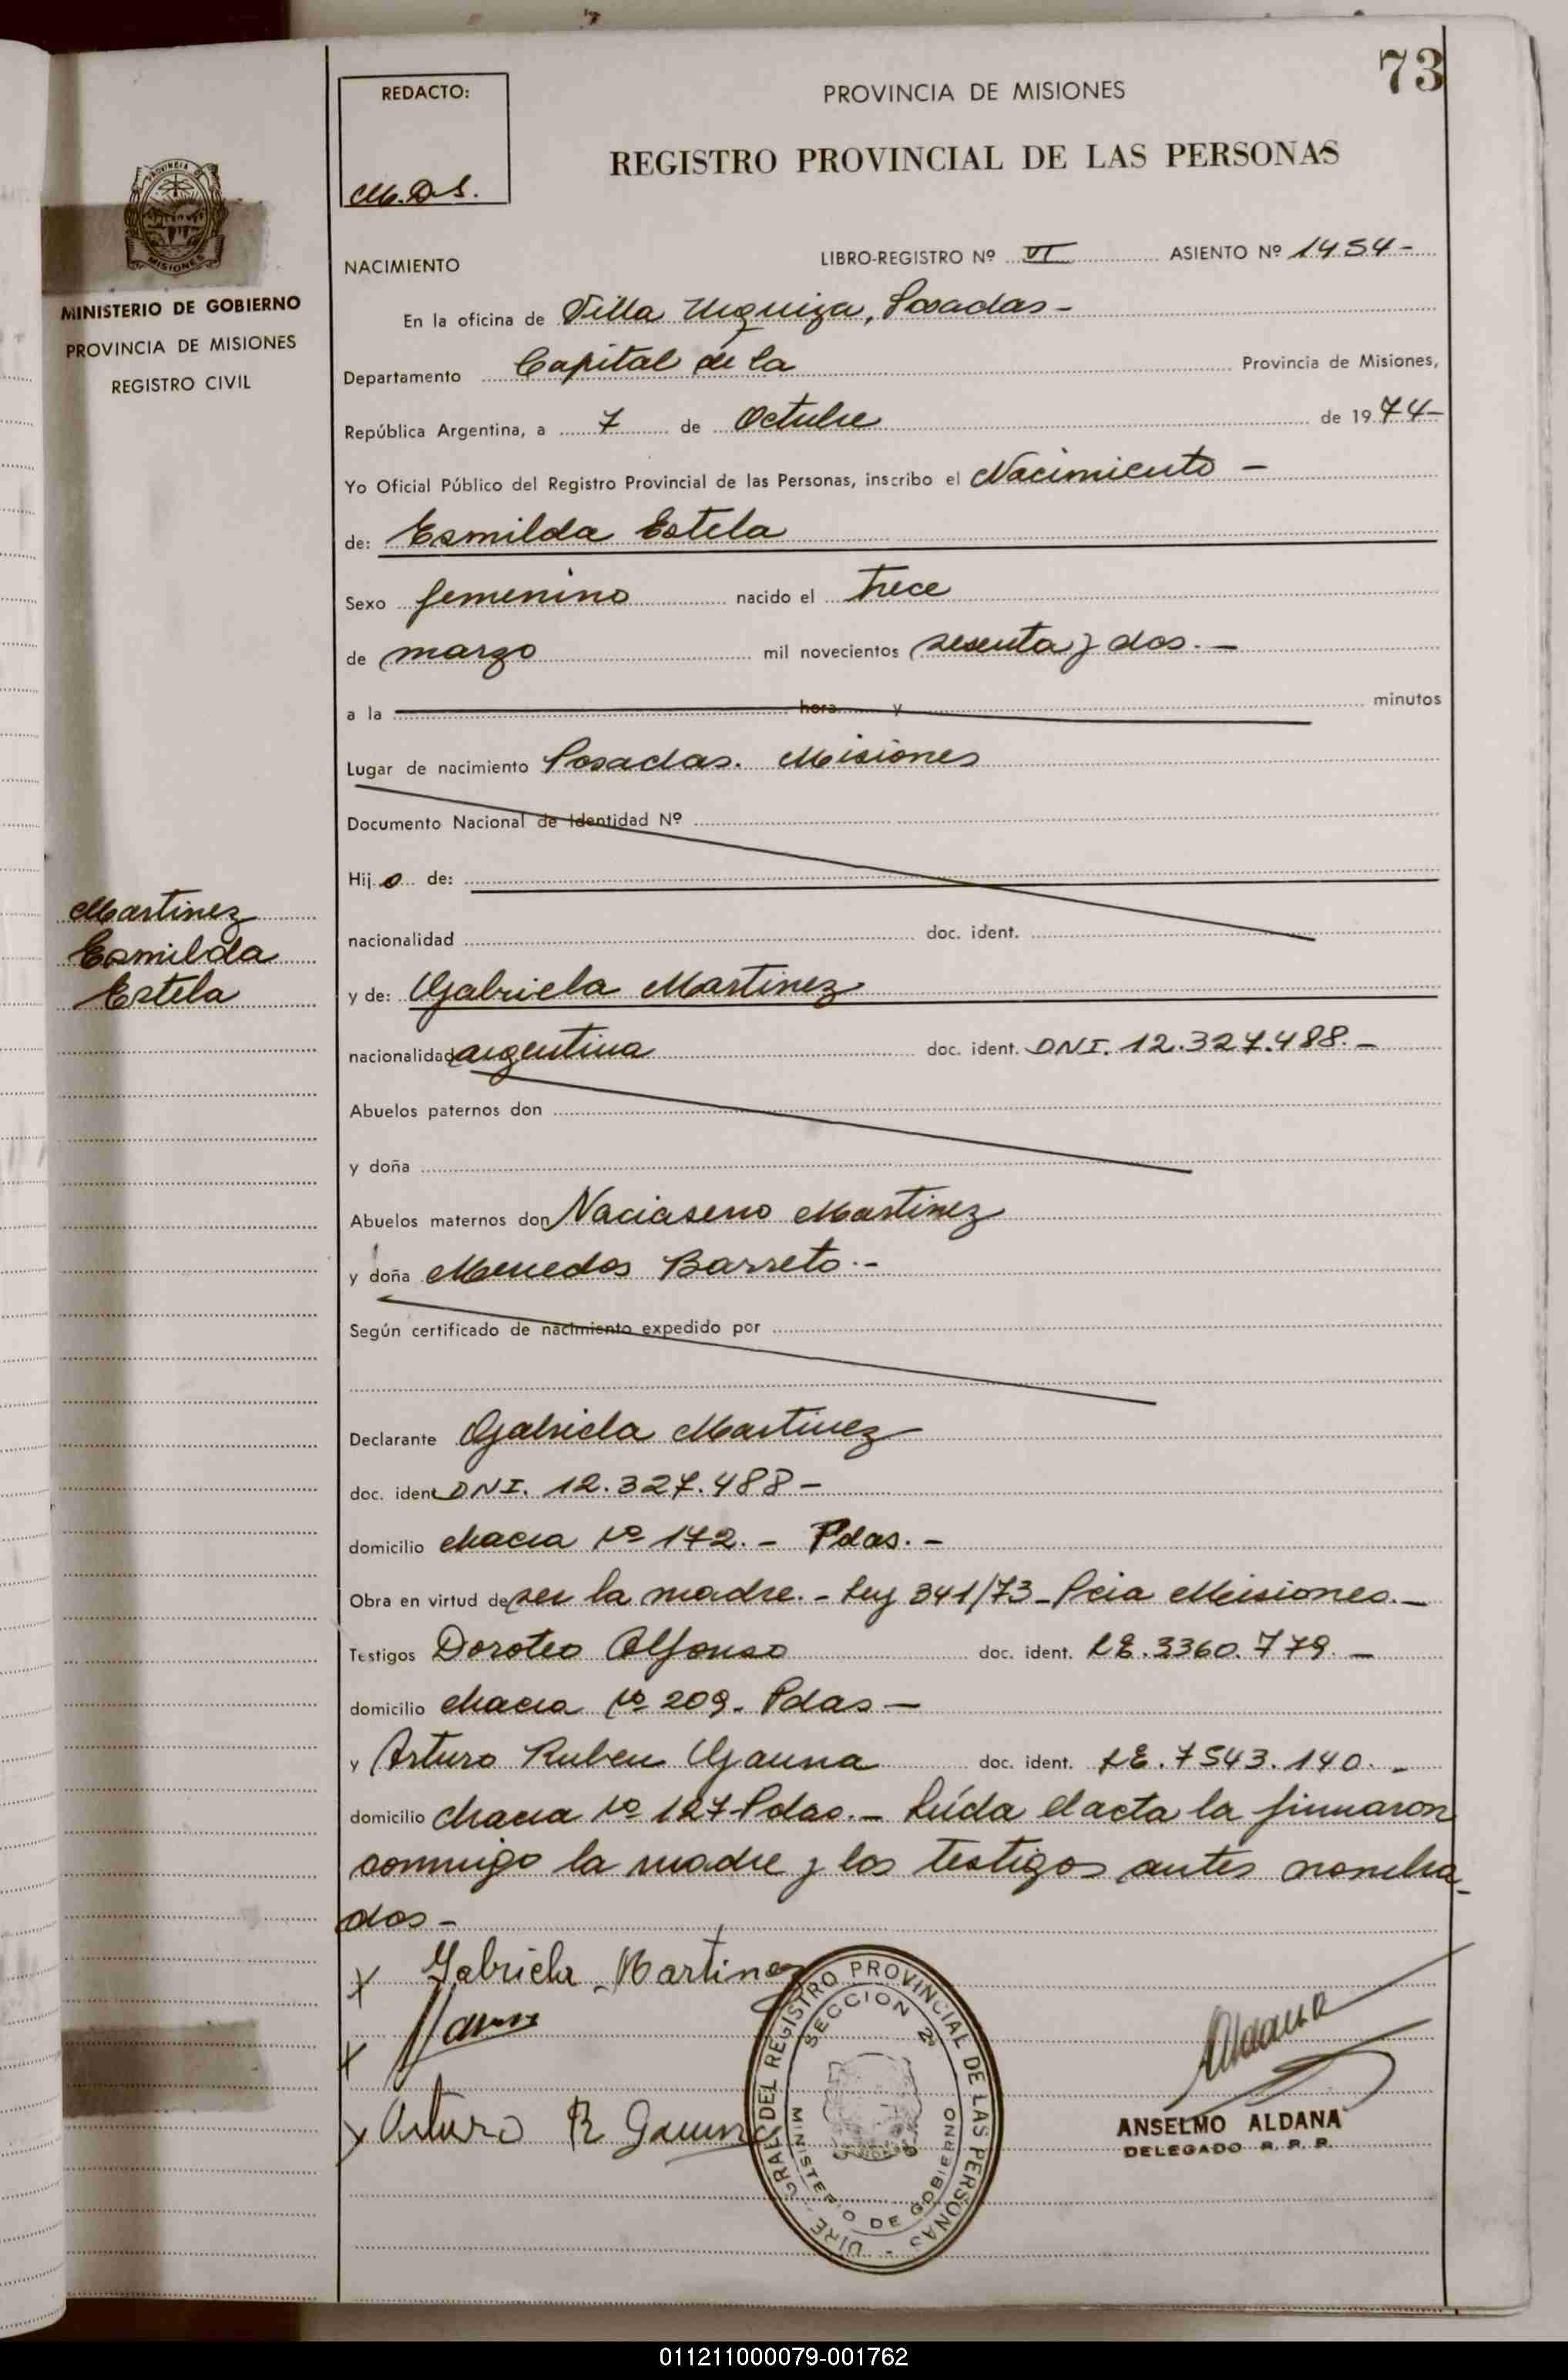 73
REDACTO:
M.D.S.
PROVINCIA DE MISIONES
REGISTRO PROVINCIAL DE LAS PERSONAS
PROVINCIA DE
MISIONES
MINISTERIO DE GOBIERNO
PROVINCIA DE MISIONES
REGISTRO CIVIL
NACIMIENTO LIBRO-REGISTRO Nº VI ASIENTO Nº 1454-
En la oficina de Villa Urquiza, Posadas-
Departamento Capital de la Provincia de Misiones,
República Argentina, a 7 de Octubre de 1974-
Yo Oficial Público del Registro Provincial de las Personas, inscribo el Nacimiento -
de: Esmilda Estela
Sexo femenino nacido el trece
de marzo mil novecientos sesenta y dos.-
a la hora y minutos
Lugar de nacimiento Posadas. Misiones
Documento Nacional de Identidad Nº
Hijo de:
nacionalidad doc. ident.
Martinez
Esmilda
Estela
y de: Gabriela Martinez
nacionalidad argentina doc. ident. DNI. 12.327.488.-
Abuelos paternos don
y doña
Abuelos maternos don Martinez
y doña Barreto.-
Según certificado de nacimiento expedido por
Declarante Gabriela Martinez
doc. ident DNI. 12.327.488-
domicilio chacra Nº 172.- Pdas.-
Obra en virtud de ser la madre.- Ley 341/73-Pcia Misiones.-
Testigos Doroteo Alfonso doc. ident. LE.3360.779.-
domicilio chacra Nº 209. Pdas-
y Arturo Ruben Gauna doc. ident. LE.7543.140.-
domicilio chacra Nº 127-Pdas.- Leída el acta la firmaron
conmigo la madre y los testigos antes nombra-
dos-
x Gabriela Martinez
x
x Arturo R Gauna
DIRE. GRAL. DEL REGISTRO PROVINCIAL DE LAS PERSONAS -
SECCION 2ª
MINISTERIO DE GOBIERNO
Aldana
ANSELMO ALDANA
DELEGADO R. P. P.
011211000079-001762